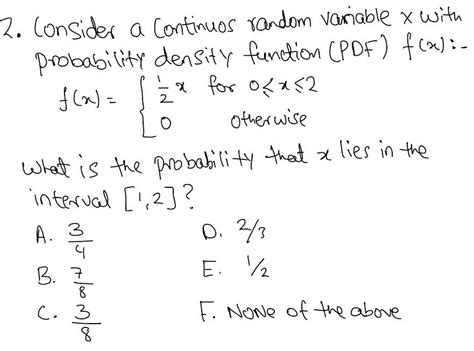 2. Consider a continuos random variable x with
probability density function (PDF) f(x):-
f(x) = { 1/2 x for 0≤x≤2
0 otherwise
What is the probability that x lies in the
interval [1,2]?
A. 3/4 D. 2/3
B. 7/8 E. 1/2
C. 3/8 F. None of the above